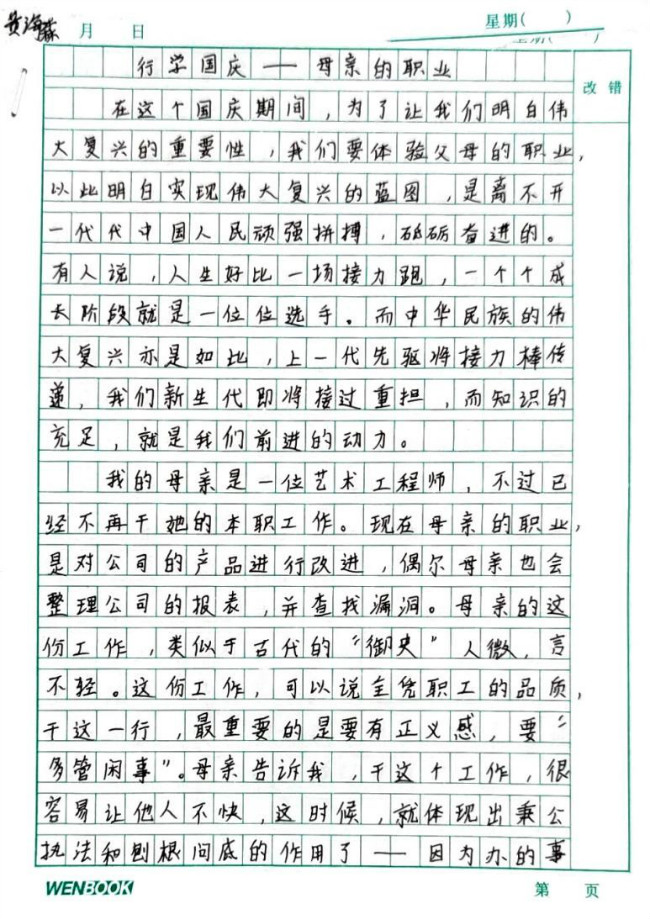 黄海森 月 日 星期( )
星期( )
改错
行学国庆——母亲的职业
在这个国庆期间,为了让我们明白伟
大复兴的重要性,我们要体验父母的职业,
以此明白实现伟大复兴的蓝图,是离不开
一代代中国人民顽强拼搏,砥砺奋进的。
有人说,人生好比一场接力跑,一个个成
长阶段就是一位位选手。而中华民族的伟
大复兴亦是如此,上一代先驱将接力棒传
递,我们新生代即将接过重担,而知识的
充足,就是我们前进的动力。
我的母亲是一位艺术工程师,不过已
经不再干她的本职工作。现在母亲的职业,
是对公司的产品进行改进,偶尔母亲也会
整理公司的报表,并查找漏洞。母亲的这
份工作,类似于古代的“御史”人微,言
不轻。这份工作,可以说全凭职工的品质,
干这一行,最重要的是要有正义感,要“
多管闲事”。母亲告诉我,干这个工作,很
容易让他人不快,这时候,就体现出秉公
执法和刨根问底的作用了——因为办的事
WENBOOK 第 页